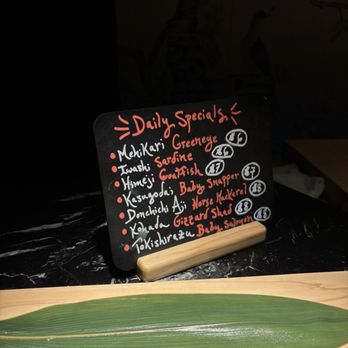 Daily Specials
• Mehikari Greeneye $6
• Iwashi Sardine $6
• Himeji Goatfish $7
• Kasugodai Baby Snapper $7
• Donchichi Aji Horse Mackerel $8
• Kohada Gizzard Shad $8
• Tokishirazu Baby Salmon $8